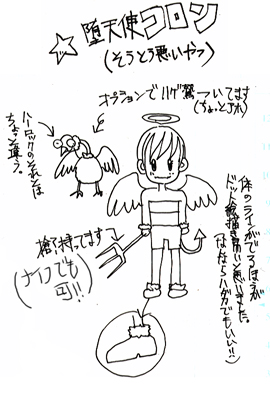 ☆堕天使コロン
(そうとう悪いやつ)
オプションでハゲ鷲ついてます
(ちょっとこわれ)
ハーロックのそれとは
ちょっと違う。
槍持ってます
(ナイフでも
可!!)
体のラインがでるほうが
ドット絵描き易いと思いました。
(なんならハダカでもいい!!)